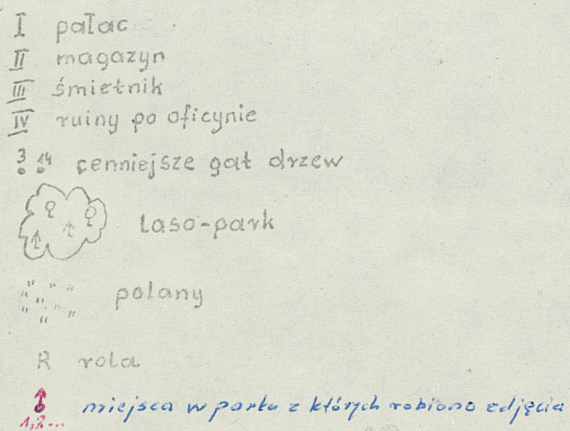 I pałac
II magazyn
III śmietnik
IV ruiny po oficynie
3 14 cenniejsze gat drzew
laso-park
polany
R rola
1,2... miejsca w parku z których robiono zdjęcia